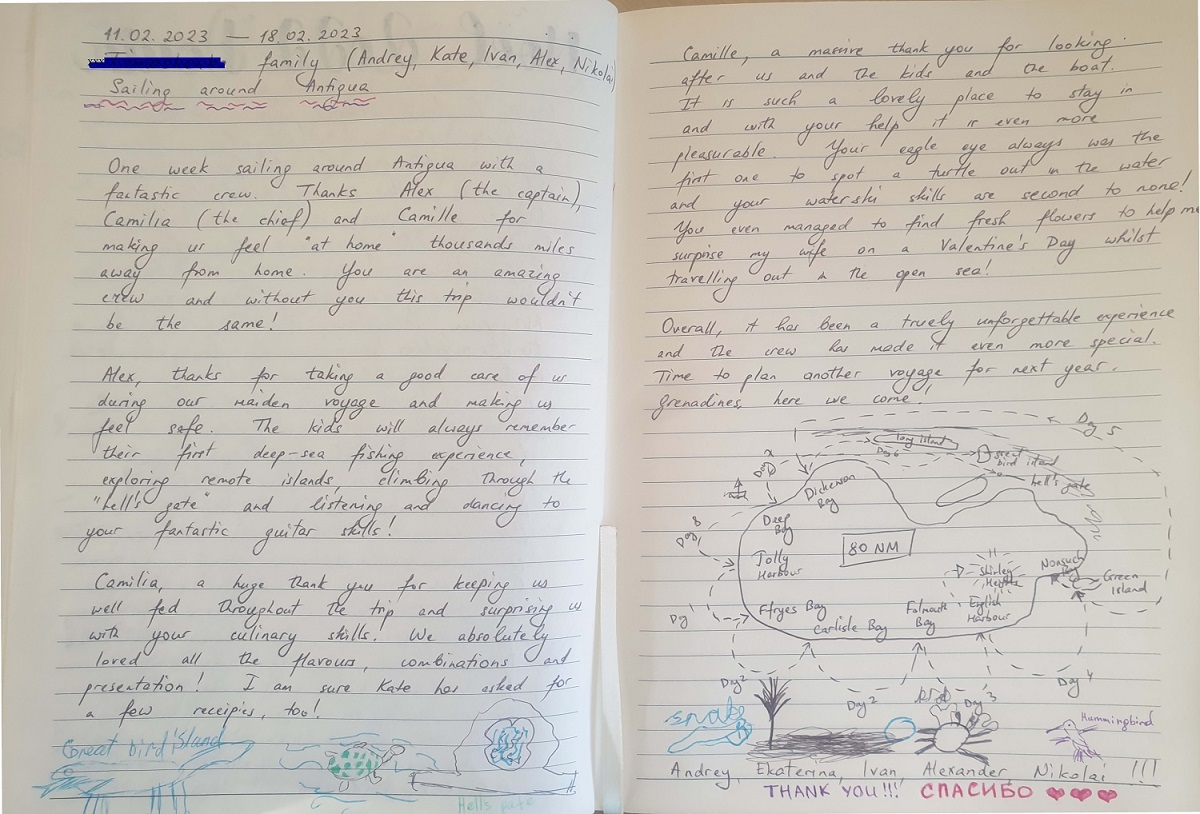 11.02.2023 — 18.02.2023
family (Andrey, Kate, Ivan, Alex, Nikolai)
Sailing around Antigua
One week sailing around Antigua with a
fantastic crew. Thanks Alex (the captain),
Camilia (the chief) and Camille for
making us feel "at home" thousands miles
away from home. You are an amazing
crew and without you this trip wouldn't
be the same!
Alex, thanks for taking a good care of us
during our maiden voyage and making us
feel safe. The kids will always remember
their first deep-sea fishing experience,
exploring remote islands, climbing through the
"hell's gate" and listening and dancing to
your fantastic guitar skills!
Camilia, a huge thank you for keeping us
well fed throughout the trip and surprising us
with your culinary skills! We absolutely
loved all the flavours, combinations and
presentation! I am sure Kate has asked for
a few receipies, too!
Great bird Island
Hell's gate
Camille, a massive thank you for looking
after us and the kids and the boat.
It is such a lovely place to stay in
and with your help it is even more
pleasurable. Your eagle eye always was the
first one to spot a turtle out in the water
and your waterski skills are second to none!
You even managed to find fresh flowers to help me
surprise my wife on a Valentine's Day whilst
travelling out in the open sea!
Overall, it has been a truely unforgettable experience
and the crew has made it even more special.
Time to plan another voyage for next year.
Grenadines, here we come!
Day 5
long island
Day 6
great
bird island
hell's gate
Dickenson
Bay
Deep
Bay
80 NM
Jolly
Harbour
Shirley
Heights
Nonsuch
Bay
Green
island
Ffryes Bay
Carlisle Bay
Falmouth
Bay
English
Harbour
Day 2
Day 2
Day 3
Day 4
snake
Hummingbird
Andrey, Ekaterina, Ivan, Alexander, Nikolai !!!
THANK YOU!!! СПАСИБО ❤❤❤